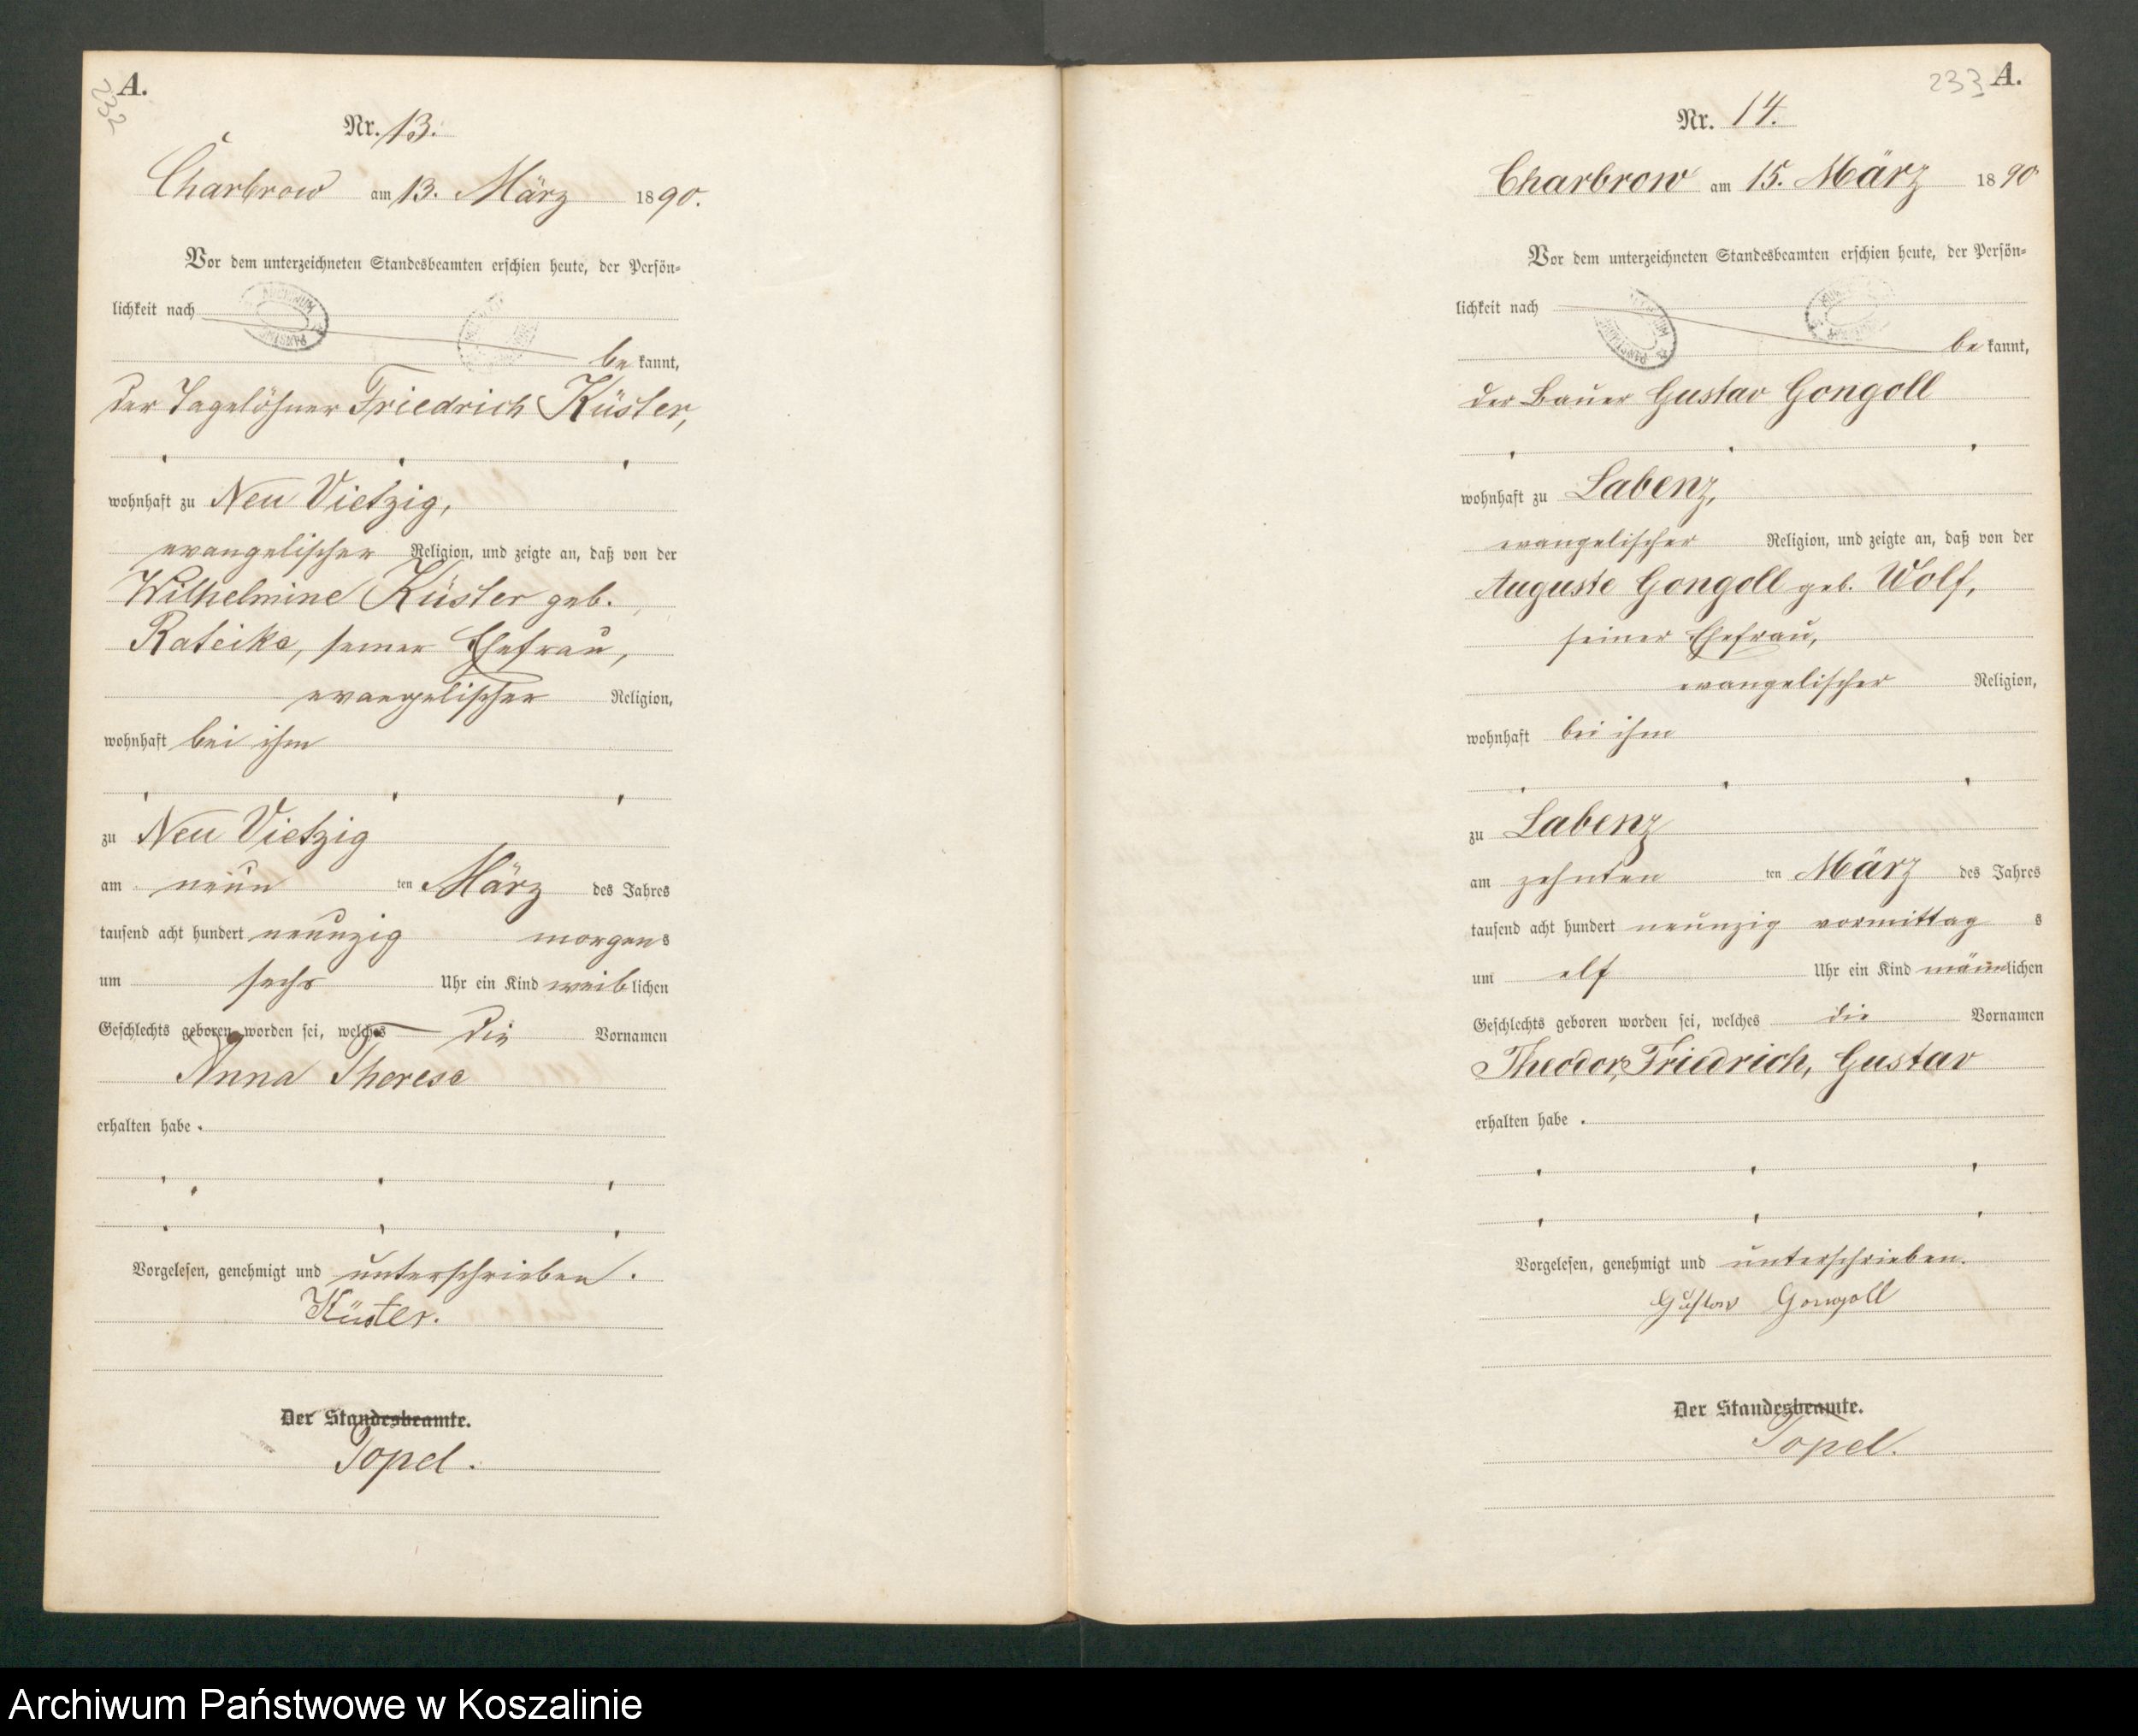 232
A.
Nr. 13.
Charbrow am 13. März 1890.
Vor dem unterzeichneten Standesbeamten erschien heute, der Persön-
lichkeit nach
bekannt,
der Tagelöhner Friedrich Küster,
wohnhaft zu Neu Vietzig,
evangelischer Religion, und zeigte an, daß von der
Wilhelmine Küster geb.
Rateike, seiner Ehefrau,
evangelischer Religion,
wohnhaft bei ihm
zu Neu Vietzig
am neunten März des Jahres
tausend acht hundert neunzig morgens
um sechs Uhr ein Kind weiblichen
Geschlechts geboren worden sei, welches die Vornamen
Anna Therese
erhalten habe.
Vorgelesen, genehmigt und unterschrieben.
Küster.
Der Standesbeamte.
Topel.
233
A.
Nr. 14.
Charbrow am 15. März 1890
Vor dem unterzeichneten Standesbeamten erschien heute, der Persön-
lichkeit nach
bekannt,
der Bauer Gustav Gongoll
wohnhaft zu Labenz,
evangelischer Religion, und zeigte an, daß von der
Auguste Gongoll geb. Wolf,
seiner Ehefrau,
evangelischer Religion,
wohnhaft bei ihm
zu Labenz
am zehnten ten März des Jahres
tausend acht hundert neunzig vormittags
um elf Uhr ein Kind männlichen
Geschlechts geboren worden sei, welches die Vornamen
Theodor, Friedrich, Gustav
erhalten habe.
Vorgelesen, genehmigt und unterschrieben.
Gustav Gongoll
Der Standesbeamte.
Topel.
Archiwum Państwowe w Koszalinie